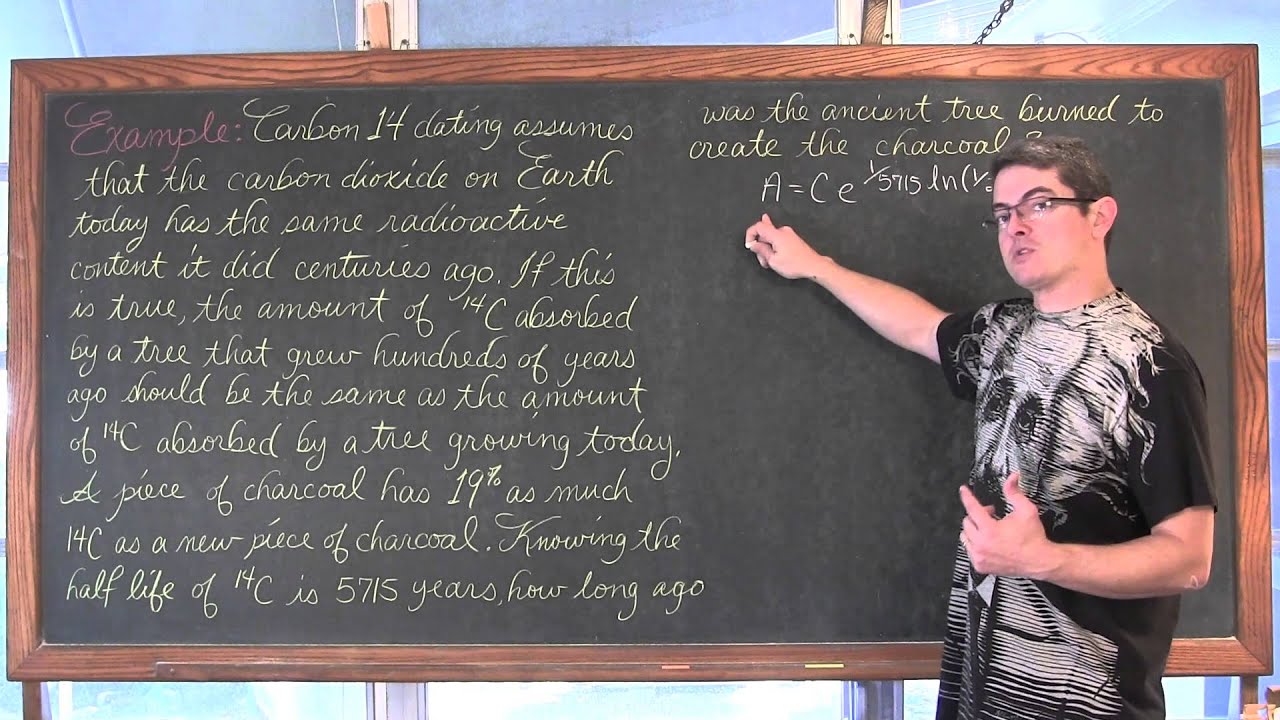 Example: Carbon 14 dating assumes
that the carbon dioxide on Earth
today has the same radioactive
content it did centuries ago. If this
is true, the amount of ¹⁴C absorbed
by a tree that grew hundreds of years
ago should be the same as the amount
of ¹⁴C absorbed by a tree growing today.
A piece of charcoal has 19% as much
¹⁴C as a new piece of charcoal. Knowing the
half life of ¹⁴C is 5715 years, how long ago
was the ancient tree burned to
create the charcoal?
A = Ce 1/5715 ln(1/